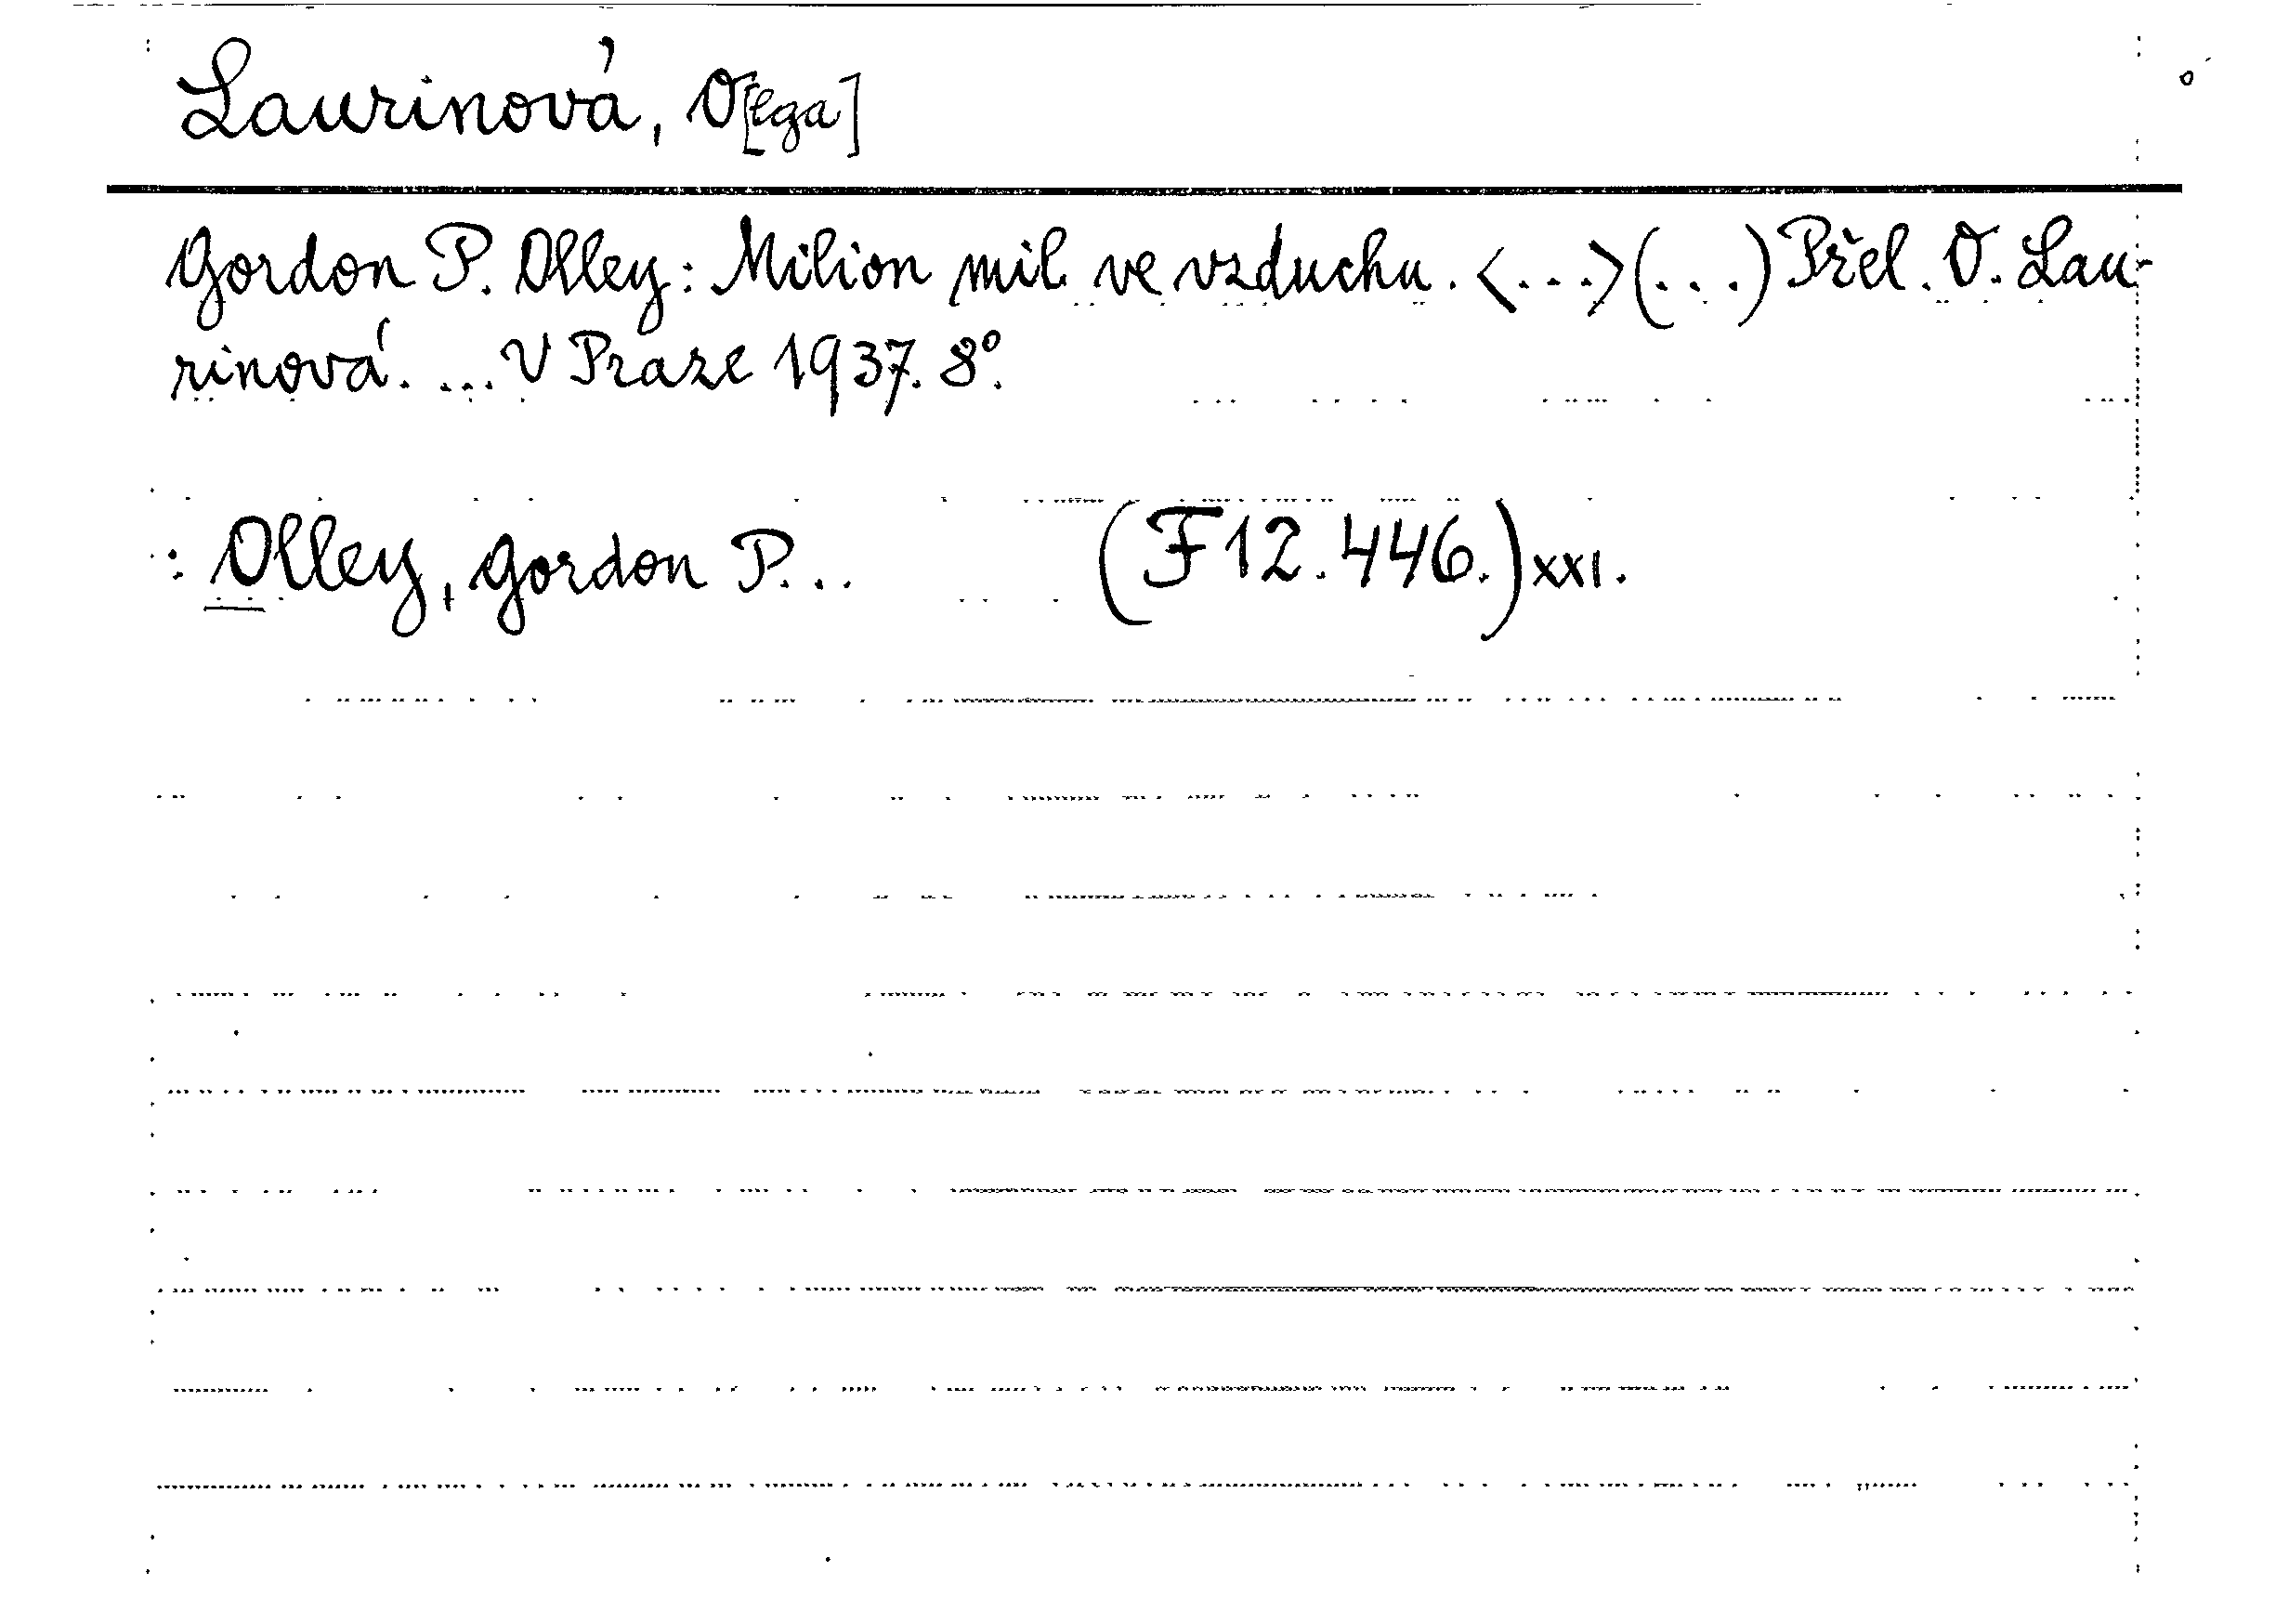 Laurinová, O[lga]
Gordon P. Olley: Milion mil ve vzduchu. <...>(...) Přel. O. Lau-
rinová. ... V Praze 1937. 8°.
: Olley, Gordon P... (F 12.446.) XXI.